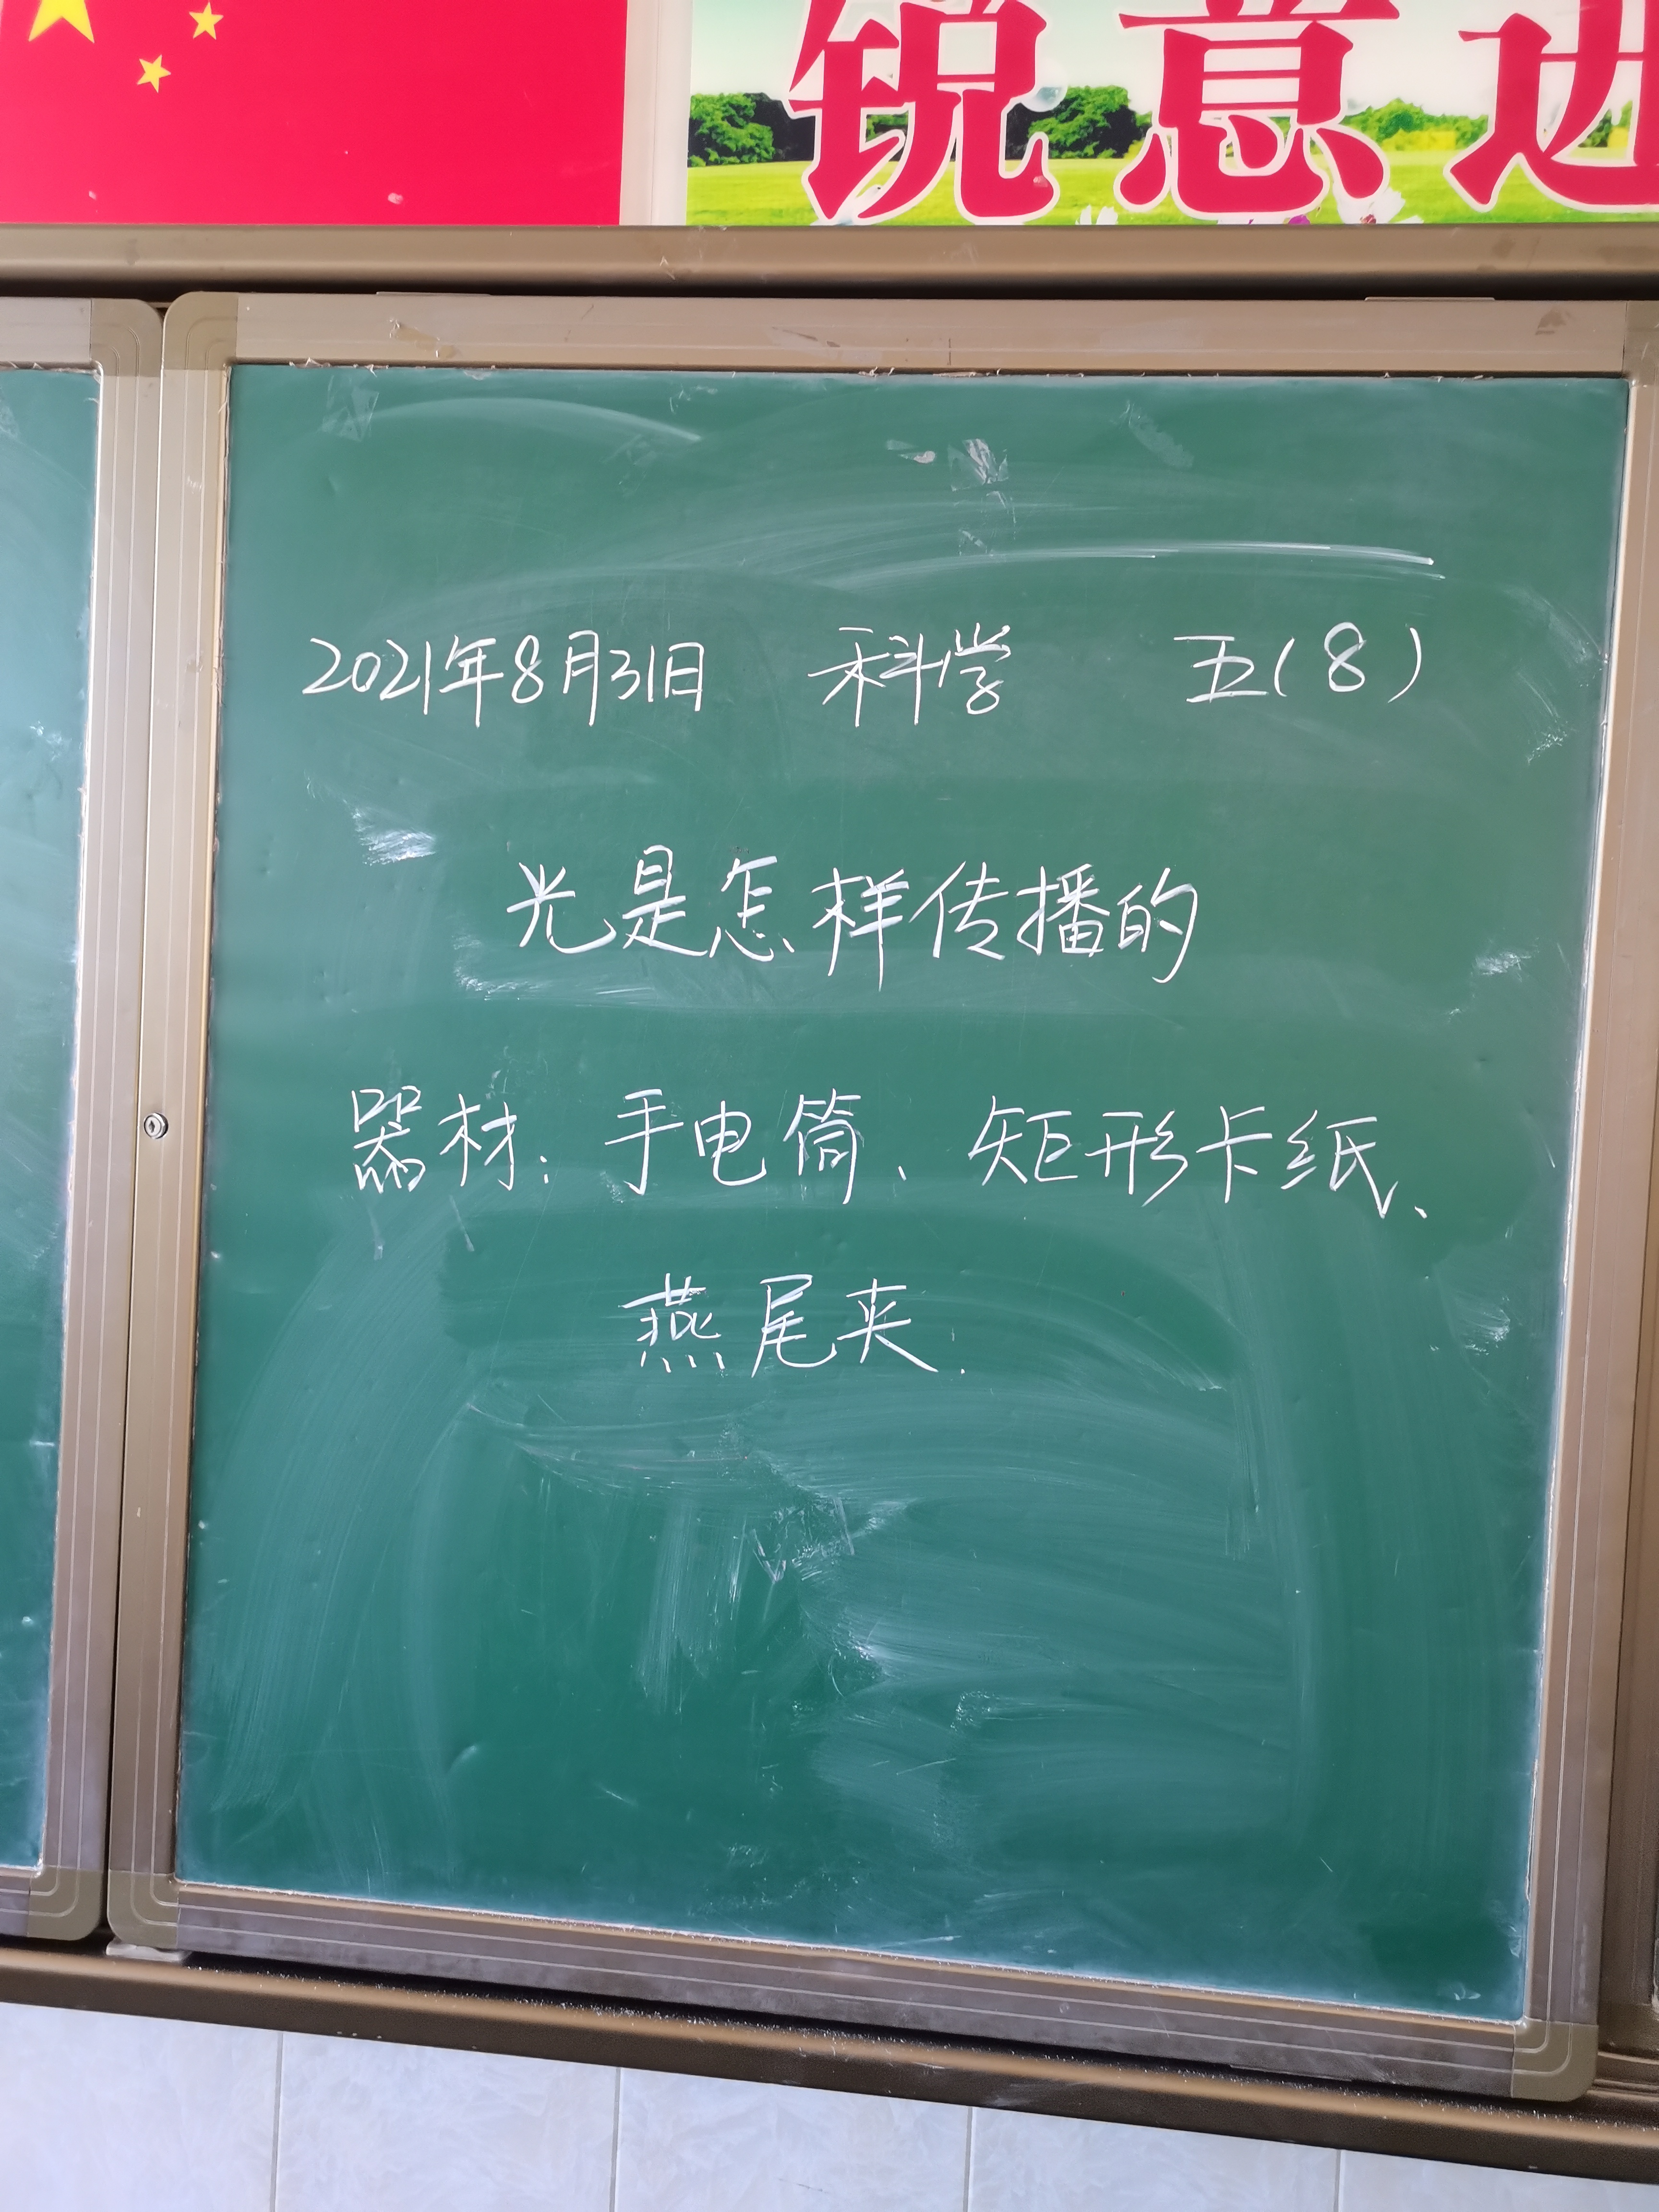 锐意进
2021年8月31日 科学 五(8)
光是怎样传播的
器材:手电筒、矩形卡纸、
燕尾夹.